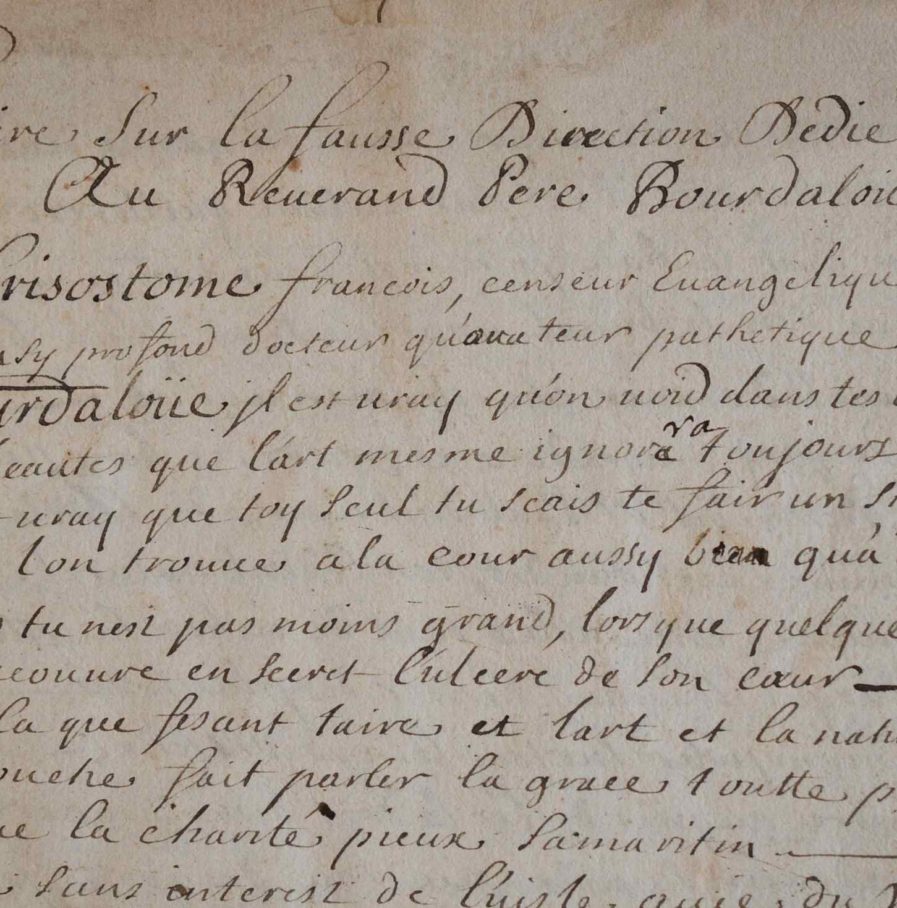 ire Sur la fausse Direction Dedie
Au Reuerand Pere Bourdaloüe
risostome francois, censeur Euangelique
sy profond docteur qu'orateur pathetique
urdaloüe jl est uray qu'on uoid dans tes
eautes que l'art mesme ignorera toujours
uray que toy seul tu scais te fair un
lon trouue a la cour aussy bien qu'a
tu nest pas moins grand, lorsque quelque
ecouure en secret l'ulcere de son cœur
la que fesant taire et lart et la natu
ouche fait parler la grace toutte p
ue la charité pieux samaritin
sans interest de l'huile du